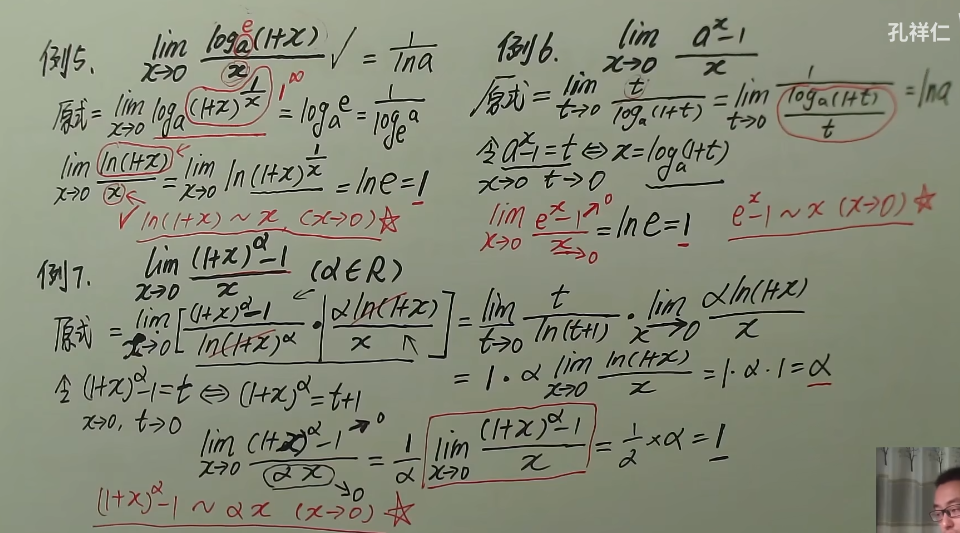 孔祥仁
例5. lim_{x→0} log_a^e(1+x)/x ✓ = 1/lna
原式 = lim_{x→0} log_a (1+x)^{1/x} 1^∞ = log_a^e = 1/log_e^a
lim_{x→0} ln(1+x)/x = lim_{x→0} ln(1+x)^{1/x} = lne = 1
✓ ln(1+x) ~ x (x→0) ☆
例6. lim_{x→0} (a^x-1)/x
原式 = lim_{t→0} t/log_a(1+t) = lim_{t→0} 1/(log_a(1+t)/t) = lna
令 a^x-1=t ⇔ x=log_a(1+t)
x→0 t→0
lim_{x→0} (e^x-1)/x →0 →0 = lne = 1 e^x-1 ~ x (x→0) ☆
例7. lim_{x→0} ((1+x)^α-1)/x (α∈R)
原式 = lim_{x→0} [((1+x)^α-1)/ln(1+x)^α · αln(1+x)/x] = lim_{t→0} t/ln(t+1) · lim_{x→0} αln(1+x)/x
= 1·α lim_{x→0} ln(1+x)/x = 1·α·1 = α
令 (1+x)^α-1=t ⇔ (1+x)^α=t+1
x→0, t→0
lim_{x→0} ((1+x)^α-1)/(αx) →0 →0 = 1/α lim_{x→0} ((1+x)^α-1)/x = 1/2×α = 1
(1+x)^α-1 ~ αx (x→0) ☆